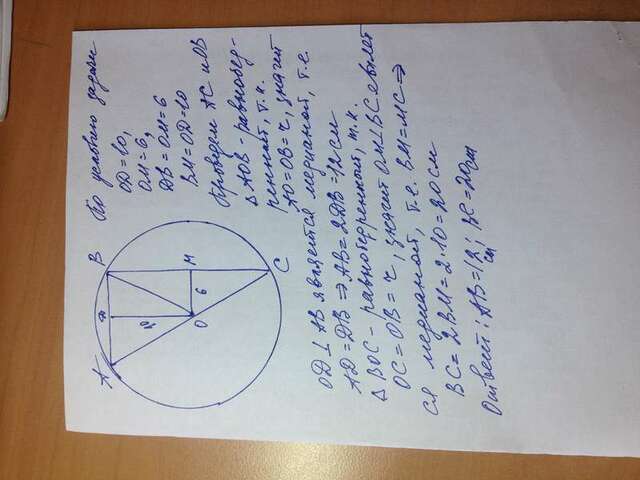 A D B
10
O 6 M
C
По условию задачи
OD=10,
OM=6,
DB=OM=6
BM=OD=10
Проведем AC и OB
△ AOB - равнобед-
ренный, т.к.
AO=OB=r, значит
OD⊥AB является медианой, т.е.
AD=DB ⇒ AB=2DB=12см
△ BOC - равнобедренный, т.к.
OC=OB=r, значит OM⊥BC являет
ся медианой, т.е. BM=MC ⇒
BC=2BM=2·10=20см
Ответ: AB=12см; BC=20см